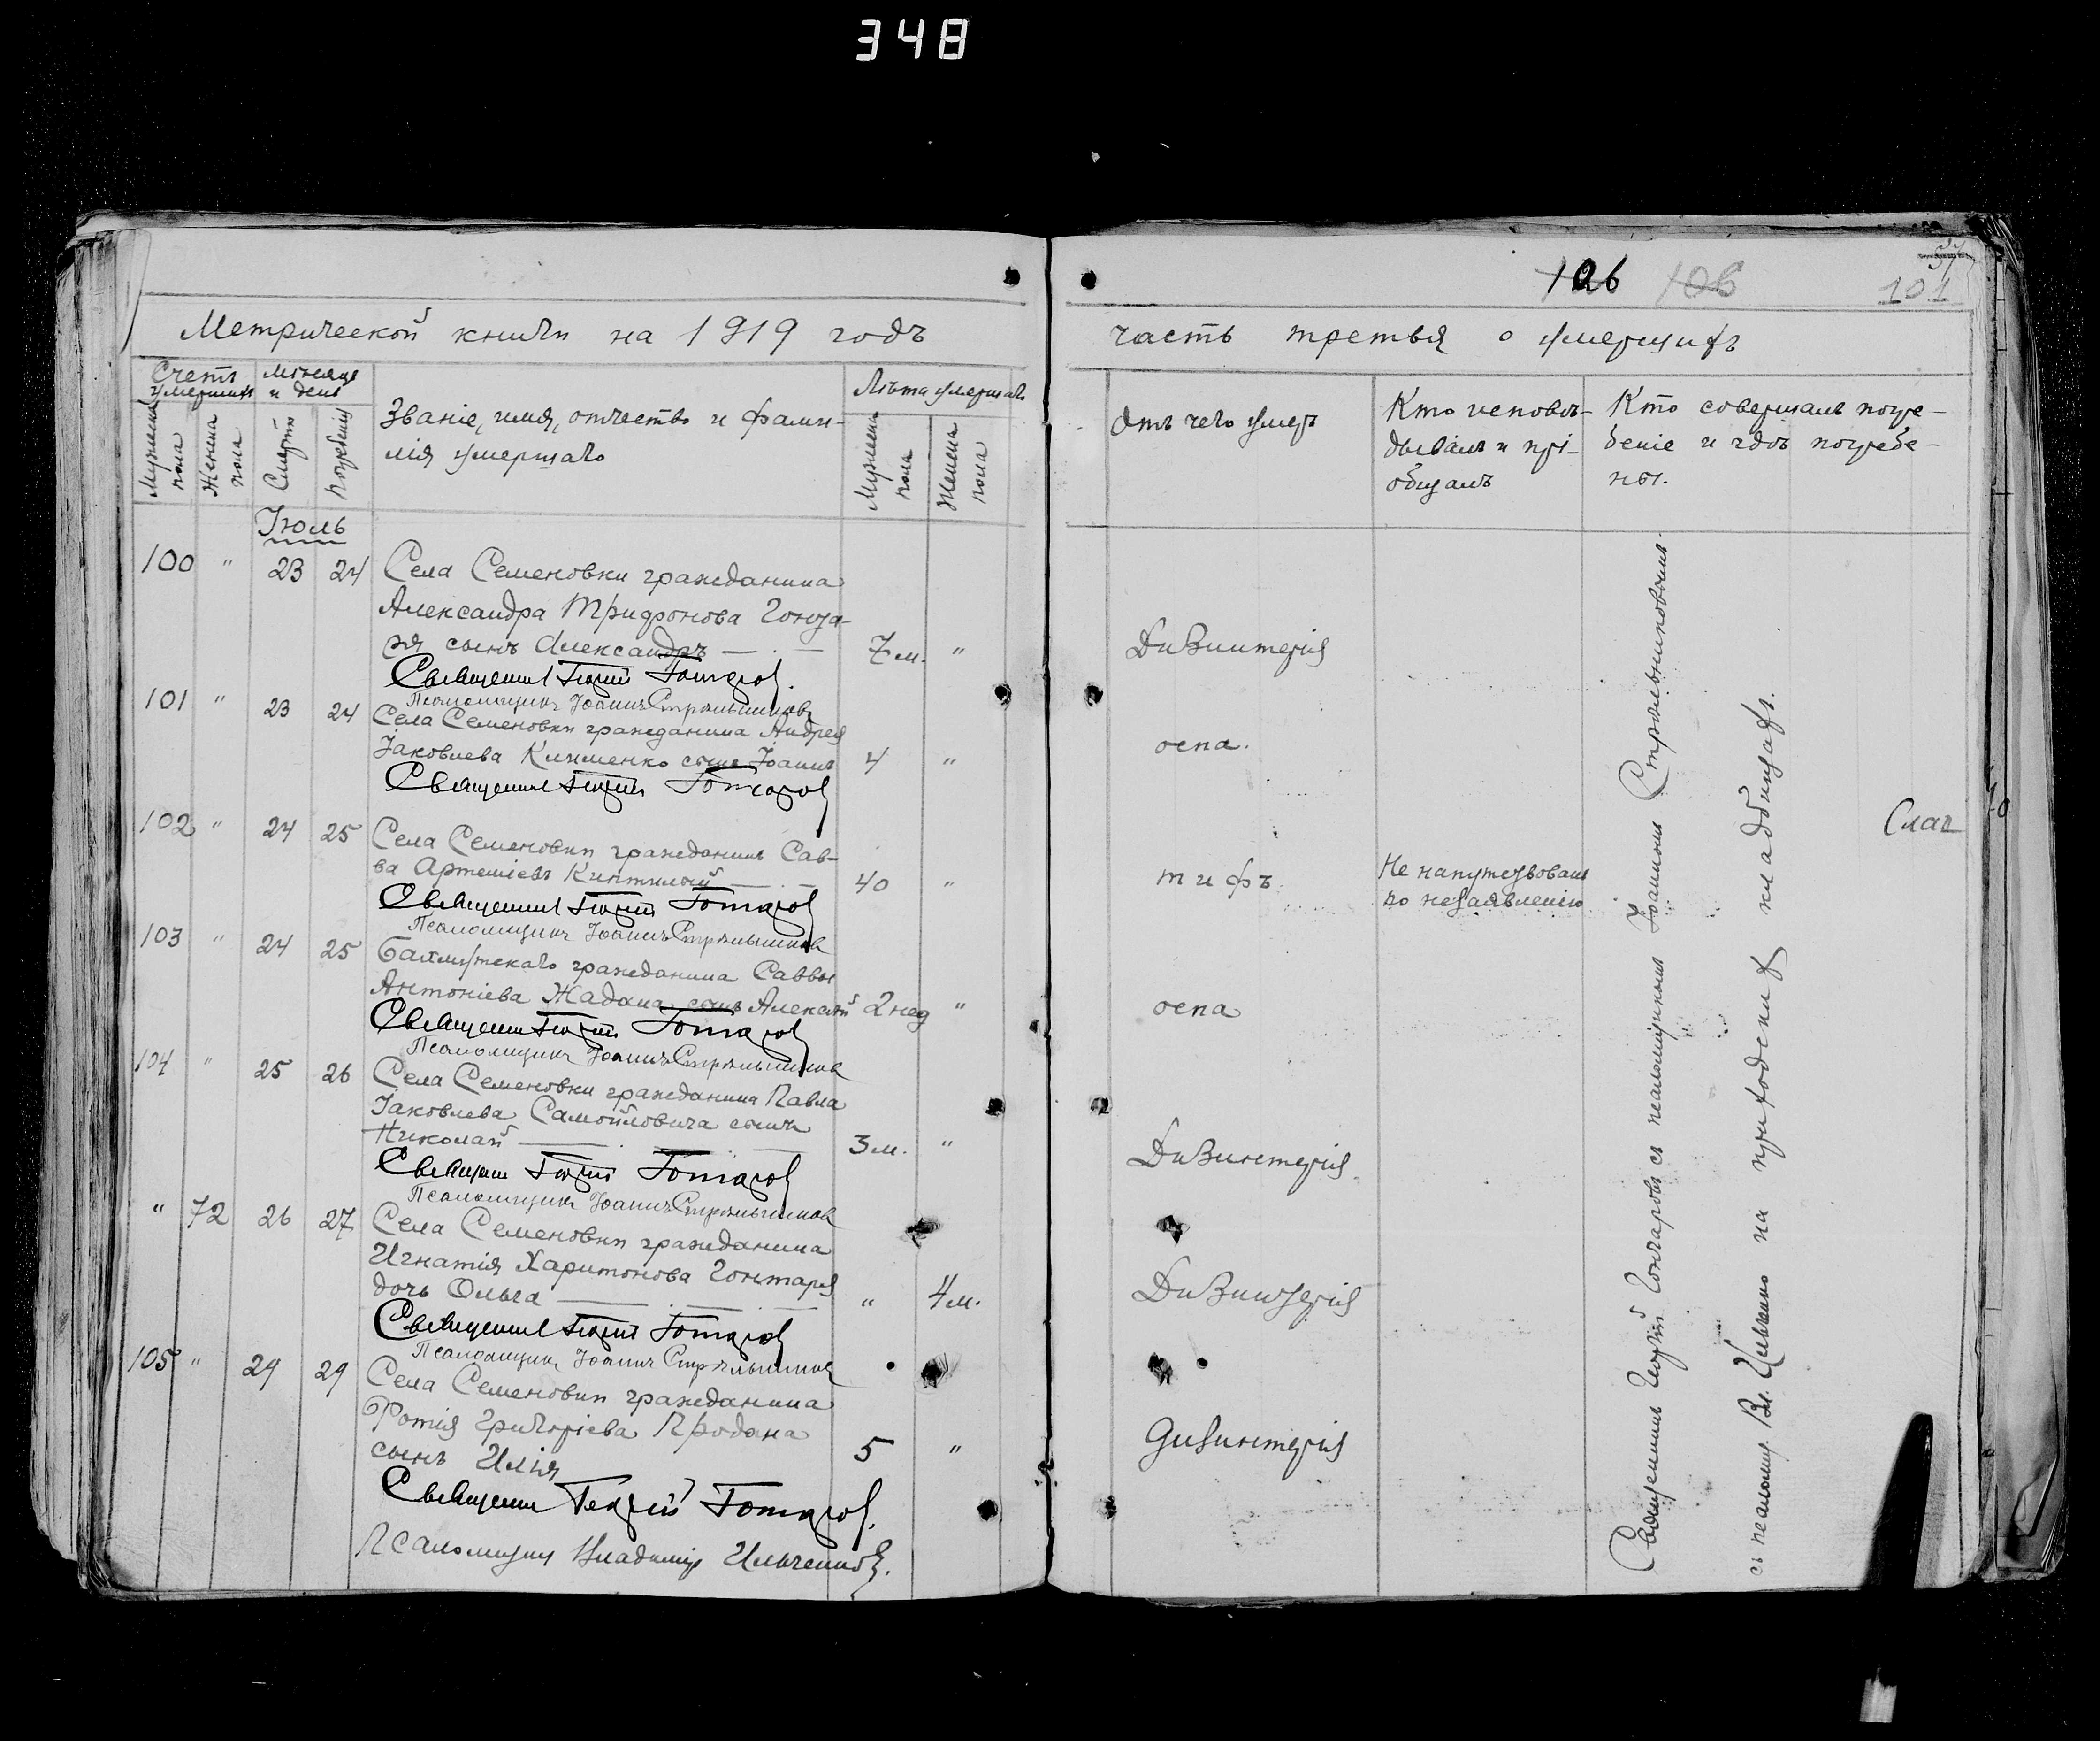 348
126 106
37
101
Метрической книги на 1919 годъ
часть третья о умершихъ
Счетъ умершихъ
Мужеска пола
Женска пола
Мѣсяцъ и день
Смерти
погребенія
Званіе, имя, отчество и фами-
лія умершаго
Лѣта умершаго
Мужеска пола
Женска пола
Отъ чего умеръ
Кто исповѣ-
дывалъ и прі-
общалъ
Кто совершалъ погре-
беніе и гдѣ погребе-
ны.
Іюль
100 " 23 24 Села Семеновки гражданина
Александра Трифонова Гонта-
ря сынъ Александръ 7 м. " Дизинтерія
Священникъ Георгій Гончаровъ.
Псаломщикъ Іоаннъ Стрѣльниковъ
101 " 23 24 Села Семеновки гражданина Андрея
Іаковлева Клименко сынъ Іоаннъ 4 " оспа.
Священникъ Георгій Гончаровъ
102 " 24 25 Села Семеновки гражданинъ Сав-
ва Артеміевъ 40 " тифъ. Не напутствованъ
по незаявленію
Священникъ Георгій Гончаровъ
Псаломщикъ Іоаннъ Стрѣльниковъ
103 " 24 25 Бахмутскаго гражданина Саввы
Антоніева Жадана сынъ Алексѣй 2 нед " оспа
Священникъ Георгій Гончаровъ
Псаломщикъ Іоаннъ Стрѣльниковъ
104 " 25 26 Села Семеновки гражданина Павла
Іаковлева Самойловича сынъ
Николай 3 м. " Дизинтерія
Священникъ Георгій Гончаровъ
Псаломщикъ Іоаннъ Стрѣльниковъ
" 72 26 27 Села Семеновки гражданина
Игнатія Харитонова Гонтаря
дочь Ольга " 4 м. Дизинтерія
Священникъ Георгій Гончаровъ
Псаломщикъ Іоаннъ Стрѣльниковъ
105 " 29 29 Села Семеновки гражданина
Фотія Григоріева Продана
сынъ Илія 5 " Дизинтерія
Священникъ Георгій Гончаровъ.
Псаломщикъ Владиміръ Ильченковъ.
Священникъ Георгій Гончаровъ съ псаломщикомъ Іоанномъ Стрѣльниковымъ.
съ псаломщ. Вл. Ильченко на приходскихъ кладбищахъ.